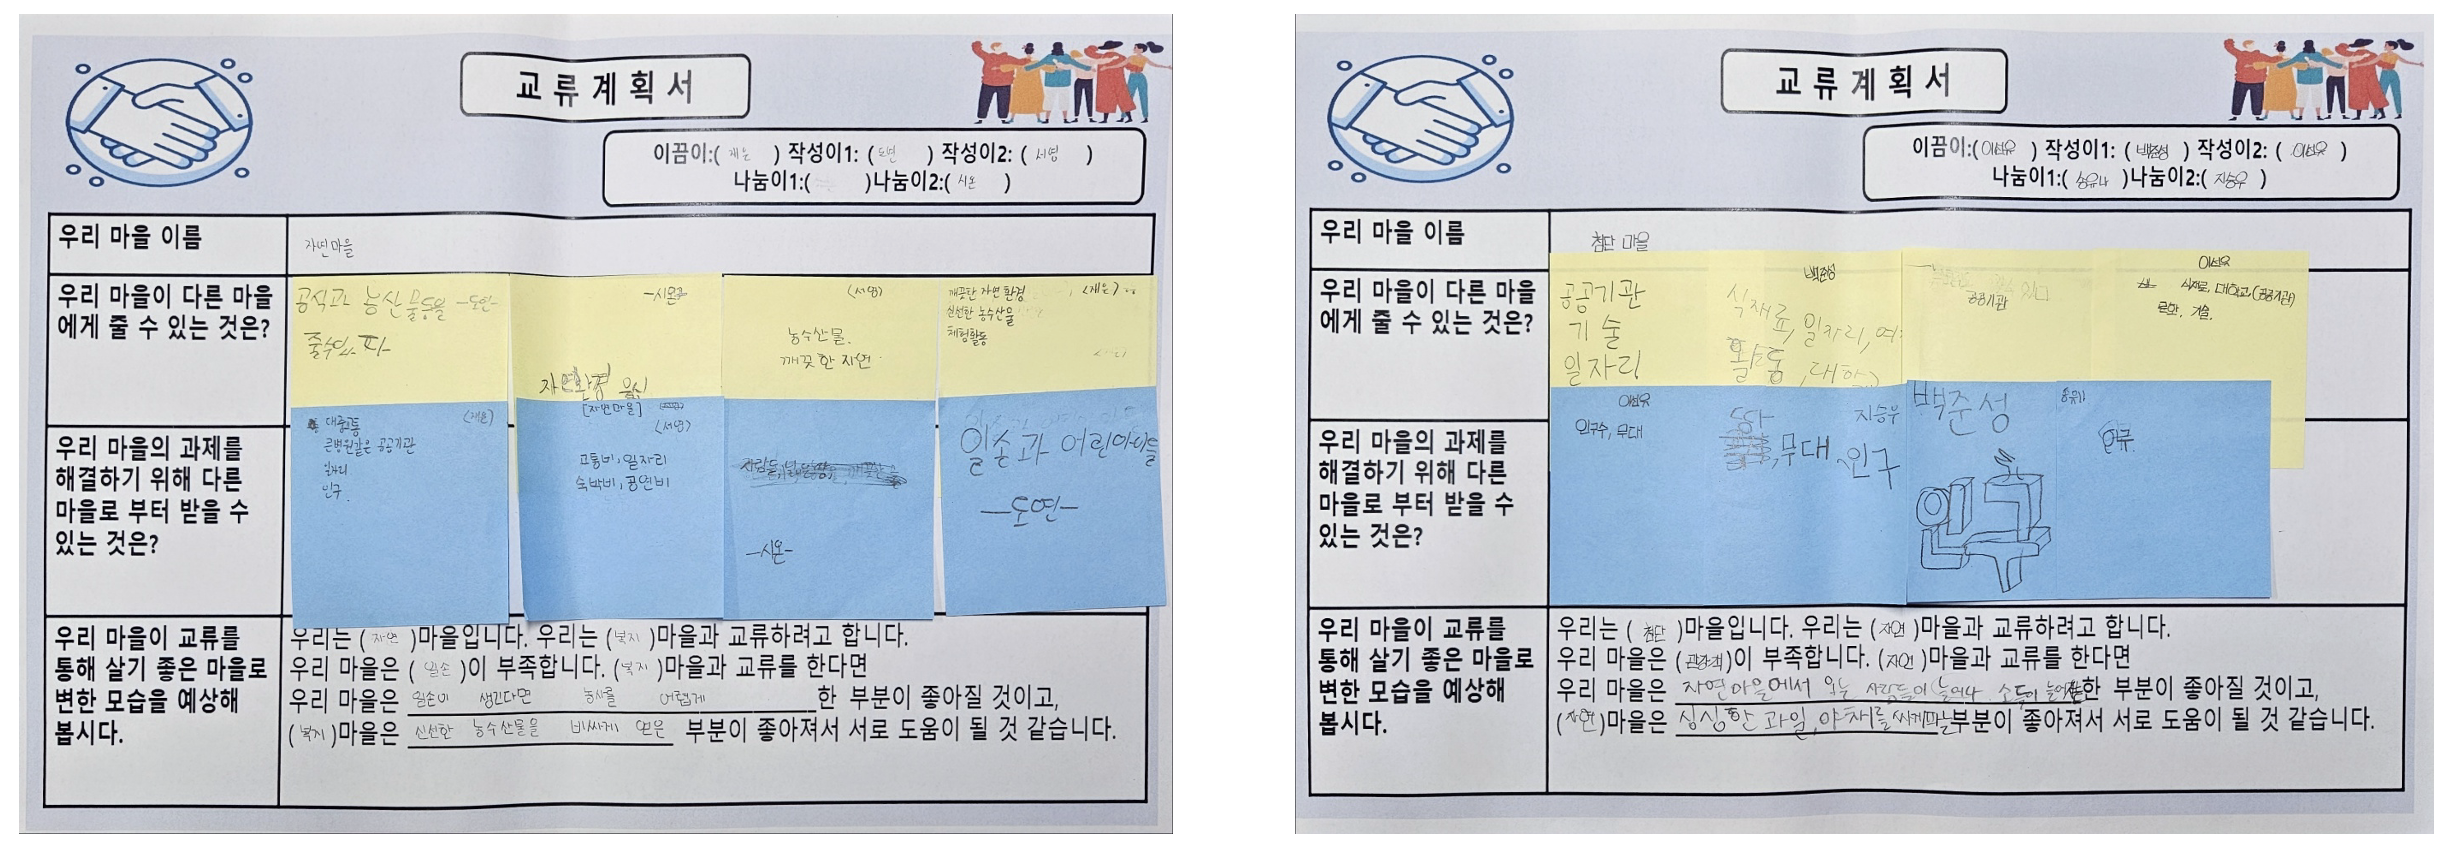 교류계획서
이끔이:( 재윤 ) 작성이1: ( 도연 ) 작성이2: ( 서영 )
나눔이1:( )나눔이2:( 시온 )
우리 마을 이름
자연마을
우리 마을이 다른 마을
에게 줄 수 있는 것은?
공식과 농산물등을 -도연-
줄수있 다
-시온-
자연환경 음식
(서영)
농수산물.
깨끗한 자연
깨끗한 자연 환경 (재윤)
신선한 농수산물
체험활동
우리 마을의 과제를
해결하기 위해 다른
마을로 부터 받을 수
있는 것은?
(재윤)
대중교통
큰병원같은 공공기관
일자리
인구
[자연마을]
(서영)
교통비, 일자리
숙박비, 공연비
-시온-
일손과 어린아이들
-도연-
우리 마을이 교류를
통해 살기 좋은 마을로
변한 모습을 예상해
봅시다.
우리는 ( 자연 )마을입니다. 우리는 (복지 )마을과 교류하려고 합니다.
우리 마을은 ( 일손 )이 부족합니다. (복지 )마을과 교류를 한다면
우리 마을은 일손이 생긴다면 농사를 어렵게 한 부분이 좋아질 것이고,
(복지 )마을은 신선한 농수산물을 비싸게 얻은 부분이 좋아져서 서로 도움이 될 것 같습니다.
교류계획서
이끔이:(이선유 ) 작성이1: (백준성 ) 작성이2: ( 이선유 )
나눔이1:( 송유나 )나눔이2:( 지승우 )
우리 마을 이름
첨단 마을
우리 마을이 다른 마을
에게 줄 수 있는 것은?
공공기관
기술
일자리
백준성
식재료, 일자리, 여
활동, 대학
공공기관
이선유
식재료, 대학교,(공공기관)
문화, 기술.
우리 마을의 과제를
해결하기 위해 다른
마을로 부터 받을 수
있는 것은?
이선유
인구수, 무대
지승우
무대, 인구
백준성
송유나
인구.
우리 마을이 교류를
통해 살기 좋은 마을로
변한 모습을 예상해
봅시다.
우리는 ( 첨단 )마을입니다. 우리는 (자연 )마을과 교류하려고 합니다.
우리 마을은 (관광객)이 부족합니다. (자연 )마을과 교류를 한다면
우리 마을은 자연마을에서 오는 사람들이 늘어나 소득이 늘어난한 부분이 좋아질 것이고,
(자연)마을은 싱싱한 과일,야채를 싸게파는부분이 좋아져서 서로 도움이 될 것 같습니다.